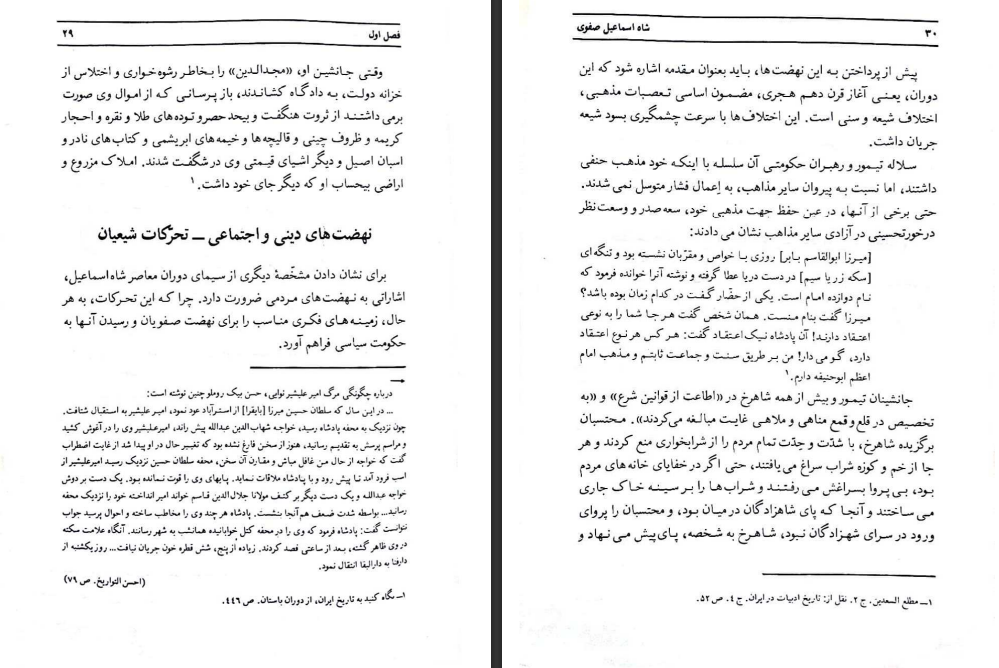 فصل اول ۲۹
وقتی جانشین او، «مجدالدین» را بخاطر رشوه‌خواری و اختلاس از
خزانه دولت، به دادگاه کشاندند، بازپرسانی که از اموال وی صورت
برمی‌داشتند از ثروت هنگفت و بیحد حصر و توده‌های طلا و نقره و احجار
کریمه و ظروف چینی و قالیچه‌ها و خیمه‌های ابریشمی و کتاب‌های نادر و
اسبان اصیل و دیگر اشیای قیمتی وی در شگفت شدند. املاک مزروع و
اراضی بیحساب او که دیگر جای خود داشت.۱
نهضت‌های دینی و اجتماعی ــ تحرّکات شیعیان
برای نشان دادن مشخّصهٔ دیگری از سیمای دوران معاصر شاه اسماعیل،
اشاراتی به نهضت‌های مردمی ضرورت دارد. چرا که این تحرکات، به هر
حال، زمینه‌های فکری مناسب را برای نهضت صفویان و رسیدن آنها به
حکومت سیاسی فراهم آورد.
درباره چگونگی مرگ امیر علیشیر نوایی، حسن بیک روملو چنین نوشته است:
... در این سال که سلطان حسین میرزا [بایقرا] از استرآباد عود نمود، امیر علیشیر به استقبال شتافت.
چون نزدیک به محفه پادشاه رسید، خواجه شهاب الدین عبدالله پیش راند، امیرعلیشیر وی را در آغوش کشید
و مراسم پرسش به تقدیم رسانید، هنوز از سخن فارغ نشده بود که تغییر حال در او پیدا شد از غایت اضطراب
گفت که خواجه از حال من غافل مباش و مقارن آن سخن، محفه سلطان حسین نزدیک رسید امیرعلیشیر از
اسب فرود آمد تا پیش رود و با پادشاه ملاقات نماید. پایهای وی را قوت نمانده بود. یک دست بر دوش
خواجه عبدالله و یک دست دیگر بر کتف مولانا جلال الدین قاسم خواند امیر انداخته خود را نزدیک محفه
رسانید... بواسطه شدت ضعف هم آنجا بنشست. پادشاه هر چند وی را مخاطب ساخته و احوال پرسید جواب
نتوانست گفت: پادشاه فرمود که وی را در محفه کتل خوابانیده همانشب به شهر رسانند. آنگاه علامت سکته
در وی ظاهر گشته، بعد از ساعتی فصد کردند. زیاده از پنج، شش قطره خون جریان نیافت... روز یکشنبه از
دارفنا به دارالبقا انتقال نمود.
(احسن التواریخ. ص ۷۹)
۱ــ نگاه کنید به تاریخ ایران، از دوران باستان. ص ۴۴۶.
۳۰ شاه اسماعیل صفوی
پیش از پرداختن به این نهضت‌ها، باید بعنوان مقدمه اشاره شود که این
دوران، یعنی آغاز قرن دهم هجری، مضمون اساسی تعصبات مذهبی،
اختلاف شیعه و سنی است. این اختلاف‌ها با سرعت چشمگیری بسود شیعه
جریان داشت.
سلاله تیمور و رهبران حکومتی آن سلسله با اینکه خود مذهب حنفی
داشتند، اما نسبت به پیروان سایر مذاهب، به اِعمال فشار متوسل نمی شدند.
حتی برخی از آنها، در عین حفظ جهت مذهبی خود، سعه صدر و وسعت نظر
درخورتحسینی در آزادی سایر مذاهب نشان می دادند:
[میرزا ابوالقاسم بابر] روزی با خواص و مقرّبان نشسته بود و تنگه ای
[سکه زر یا سیم] در دست دریا عطا گرفته و نوشته آنرا خوانده فرمود که
نام دوازده امام است. یکی از حضّار گفت در کدام زمان بوده باشد؟
میرزا گفت بنام منست. همان شخص گفت هر جا شما را به نوعی
اعتقاد دارند! آن پادشاه نیک اعتقاد گفت: هر کس هر نوع اعتقاد
دارد، گو می دار! من بر طریق سنت و جماعت ثابتم و مذهب امام
اعظم ابوحنیفه دارم.۱
جانشینان تیمور و بیش از همه شاهرخ در «اطاعت از قوانین شرع» و «به
تخصیص در قلع و قمع مناهی و ملاهی غایت مبالغه می‌کردند». محتسبان
برگزیده شاهرخ، با شدّت و حِدّت تمام مردم را از شرابخواری منع کردند و هر
جا از خم و کوزه شراب سراغ می یافتند، حتی اگر در خفایای خانه‌های مردم
بود، بی پروا بسراغش می رفتند و شراب‌ها را بر سینه خاک جاری
می ساختند و آنجا که پای شاهزادگان در میان بود، و محتسبان را پروای
ورود در سرای شهزادگان نبود، شاهرخ به شخصه، پای پیش می نهاد و
۱ــ مطلع السعدین. ج ۲. نقل از: تاریخ ادبیات در ایران. ج ۴. ص ۵۲.